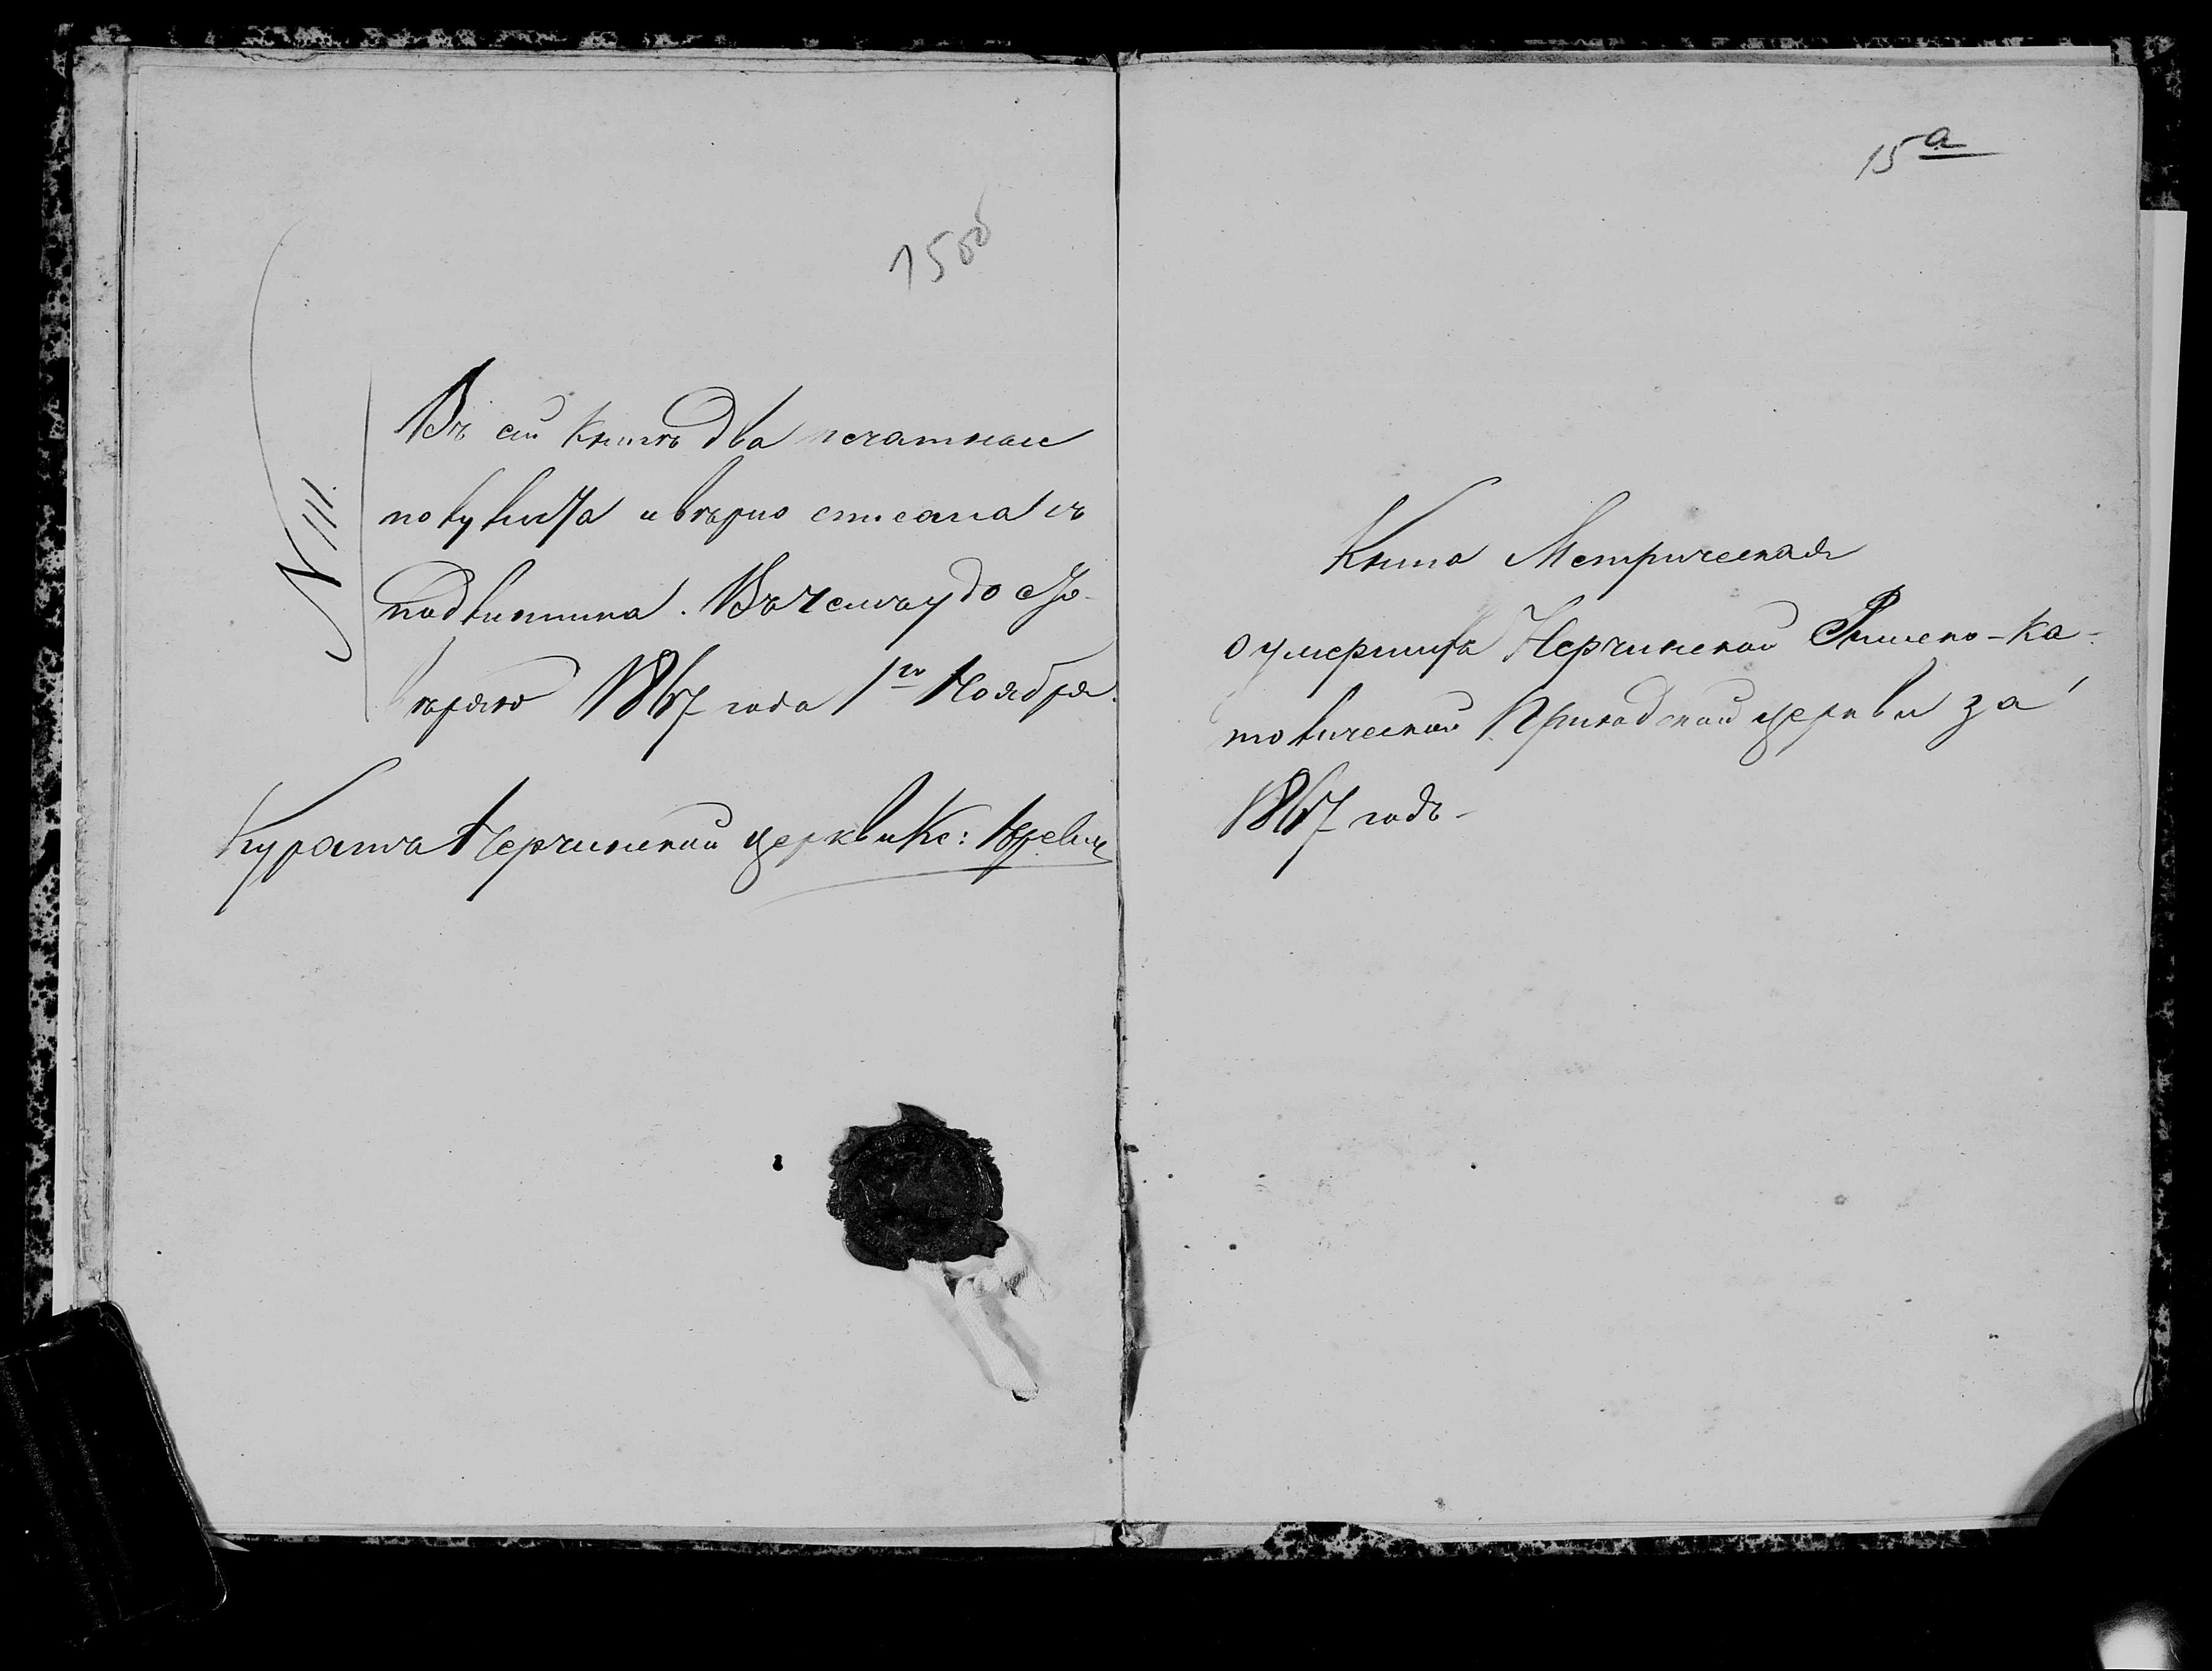 15 об
N 111.
Въ сій книгѣ два печатныхъ
полулиста и вѣрно списана съ
подлинника. Въ чемъ удосто-
вѣряю 1867 года 1го Ноября.
Куратъ Нерчинской церкви Кс:
15 а
Книга Метрическая
о умершихъ Нерчинской Римско-Ка-
толической Приходской церкви за
1867 годъ-